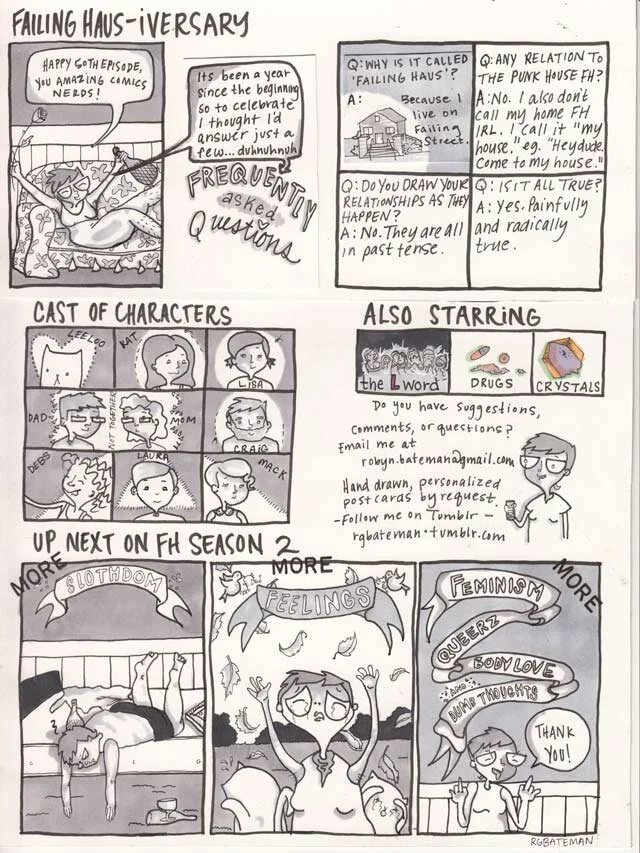 FAILING HAUS-iVERSARY
HAPPY 50TH EPISODE,
YOU AMAZING COMICS
NERDS!
Its been a year
since the beginning
so to celebrate
I thought I'd
answer just a
few... duhnuhnuh
FREQUENTLY
asked
Questions
Q: WHY IS IT CALLED
'FAILING HAUS'?
A: Because I
live on
Failing
Street.
Q: ANY RELATION TO
THE PUNK HOUSE FH?
A: No. I also don't
call my home FH
IRL. I call it "my
house." eg. "Hey dude.
Come to my house."
Q: DO YOU DRAW YOUR
RELATIONSHIPS AS THEY
HAPPEN?
A: No. They are all
in past tense.
Q: IS IT ALL TRUE?
A: Yes. Painfully
and radically
true.
CAST OF CHARACTERS
LEELOO
KAT
LISA
DAD
NOT TOGETHER
MOM
CRAIG
DEBS
LAURA
MACK
ALSO STARRING
the L word
DRUGS
CRYSTALS
Do you have suggestions,
comments, or questions?
Email me at
robyn.bateman@gmail.com
Hand drawn, personalized
postcards by request.
-Follow me on Tumblr -
rgbateman.tumblr.com
UP NEXT ON FH SEASON 2
MORE
SLOTHDOM
MORE
FEELINGS
MORE
FEMINISM
QUEERZ
BODY LOVE
AND
DUMB THOUGHTS
THANK
YOU!
RGBATEMAN